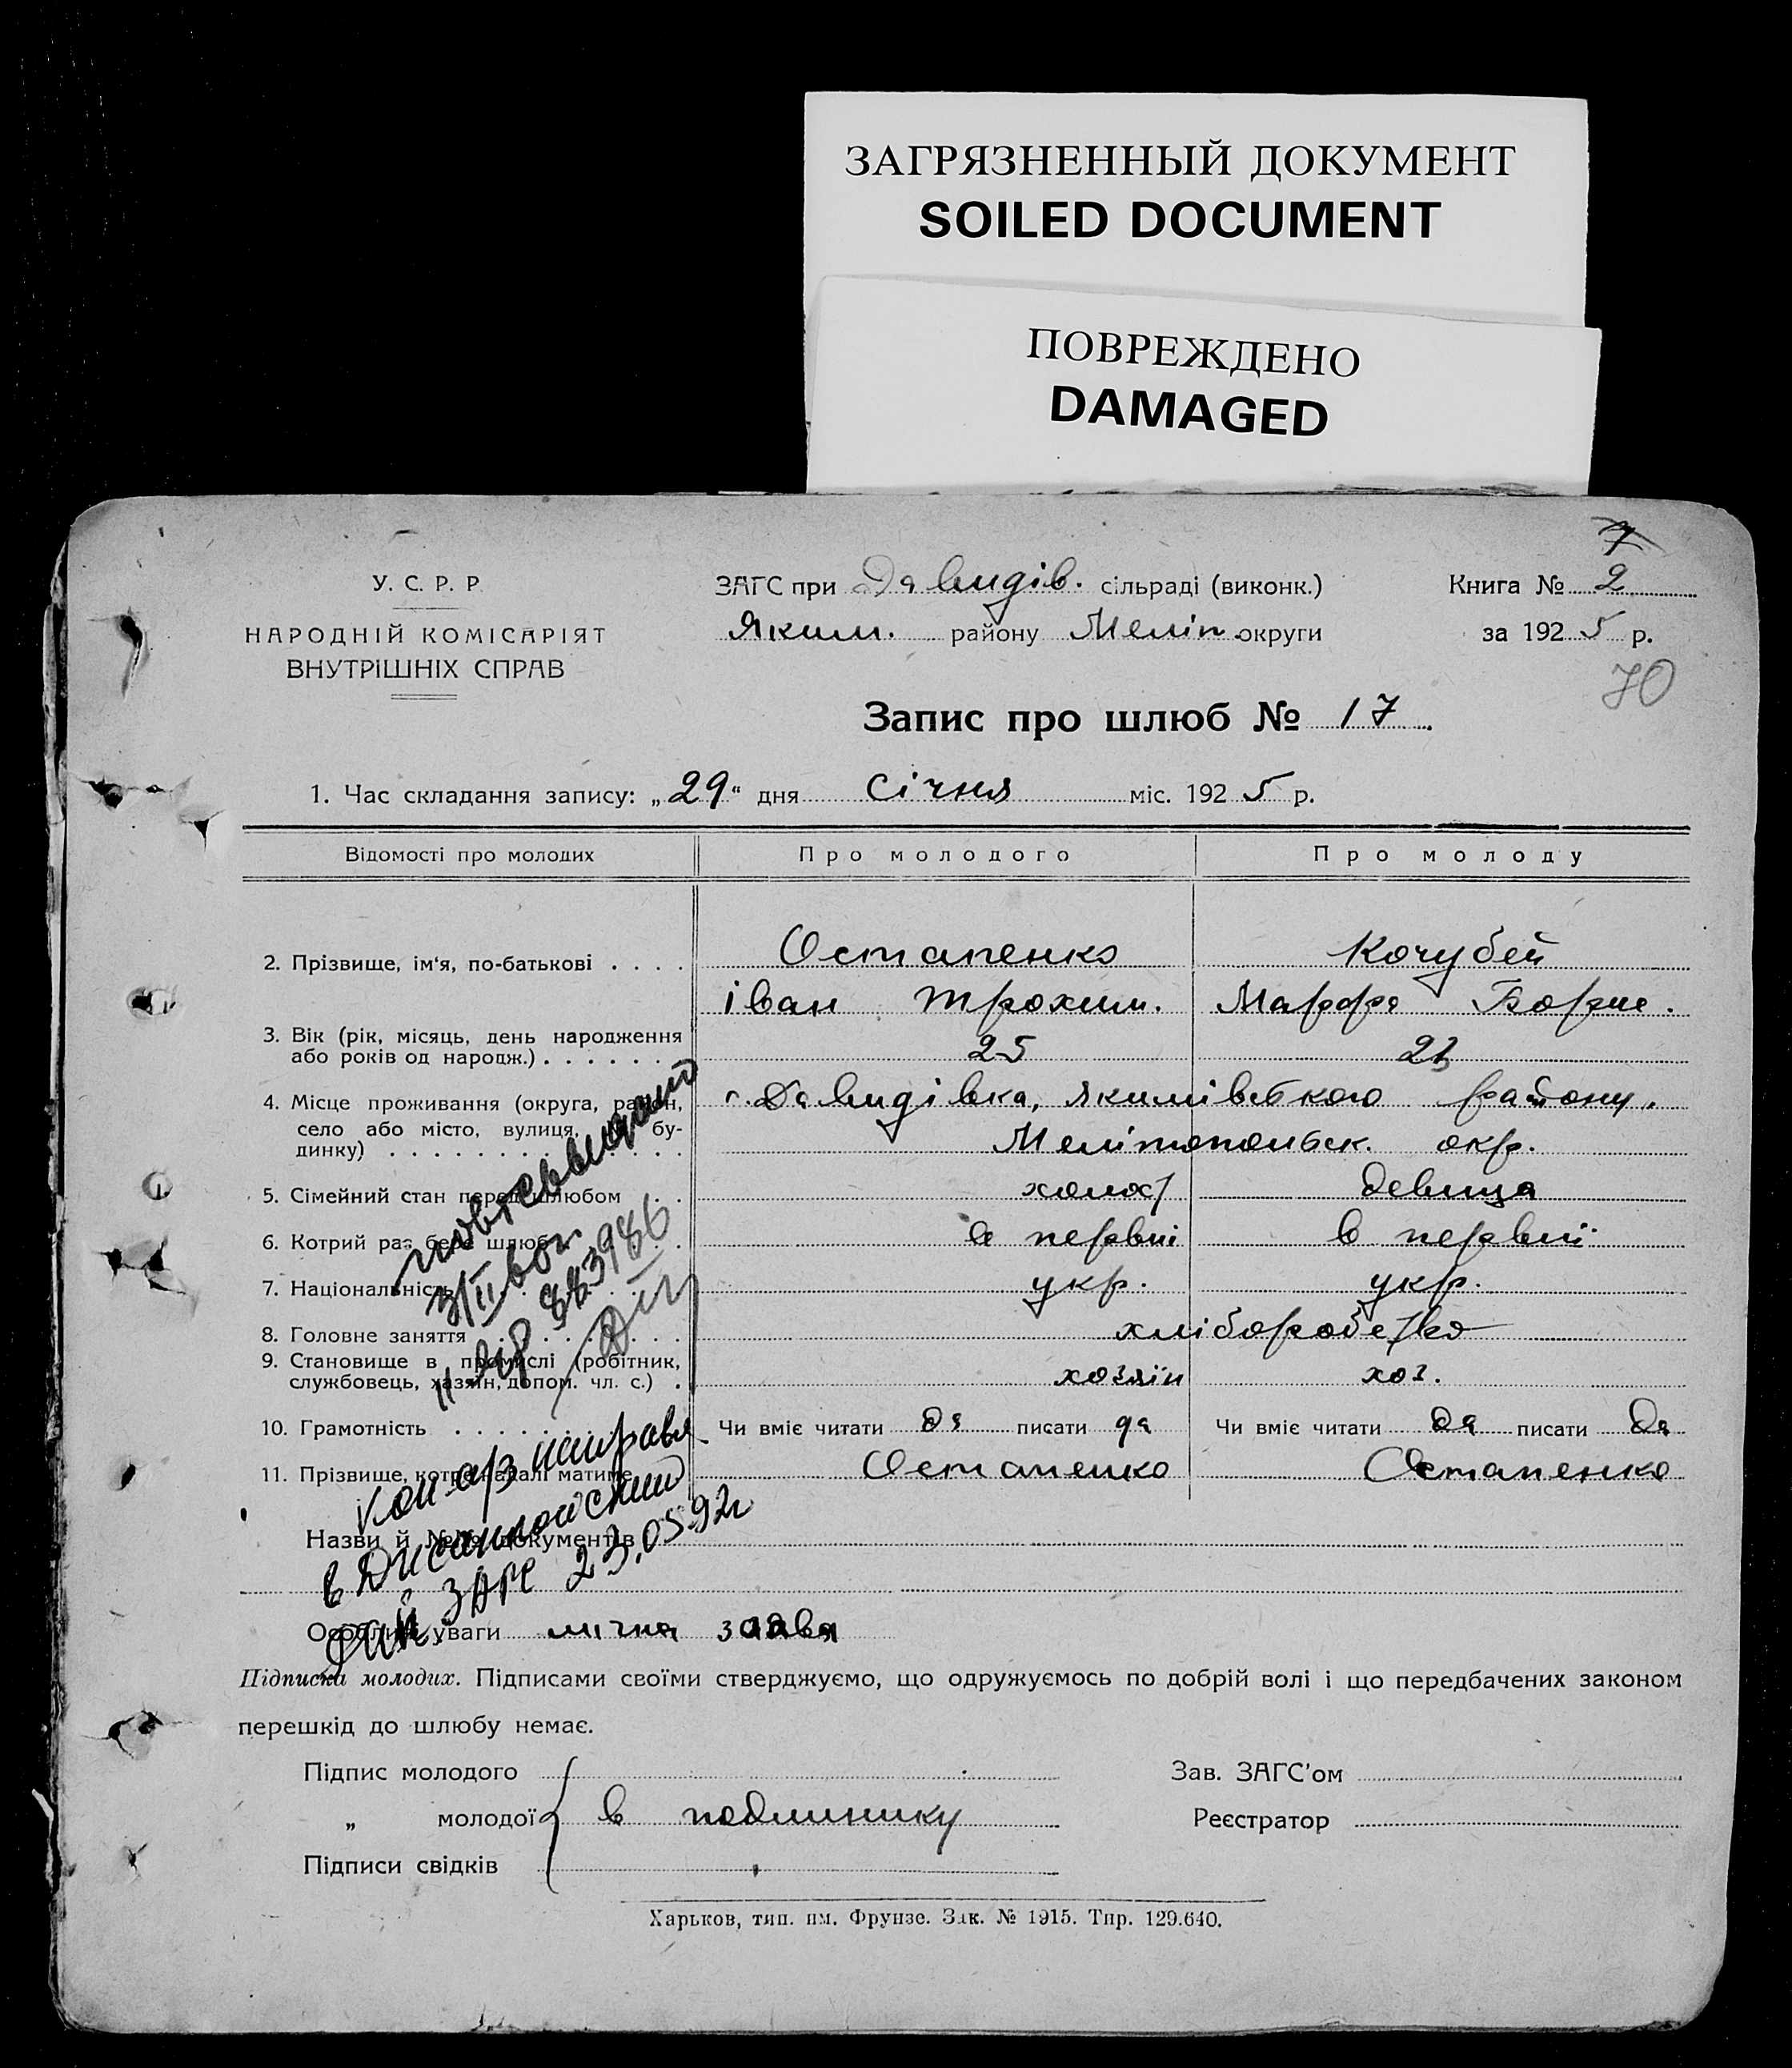 ЗАГРЯЗНЕННЫЙ ДОКУМЕНТ
SOILED DOCUMENT
ПОВРЕЖДЕНО
DAMAGED
7
У. С. Р. Р.
НАРОДНІЙ КОМІСАРІЯТ
ВНУТРІШНІХ СПРАВ
ЗАГС при Давидів. сільраді (виконк.)
Яким. району Меліт. округи
Книга № 2
за 1925 р.
70
Запис про шлюб № 17.
1. Час складання запису: „29“ дня Січня міс. 1925 р.
Відомості про молодих Про молодого Про молоду
2. Прізвище, ім‘я, по-батькові . . . . Остапенко Кочубей
іван Трохим. Марфа Борис.
3. Вік (рік, місяць, день народження
або років од народж.) . . . . . . . 25 23
4. Місце проживання (округа, район, с. Давидівка, Якимівського району.
село або місто, вулиця, бу-
динку) . . . . . . . . . . . . . Мелітопольск. окр.
5. Сімейний стан перед шлюбом . . холост девица
6. Котрий раз бере шлюб . . . в первий в первиї
7. Національність . . . . . . . укр. укр.
8. Головне заняття . . . . . . . хліборобство
9. Становище в промислі (робітник,
службовець, хазяїн, допом. чл. с.) . хозяїн хоз.
10. Грамотність . . . . . . . Чи вміє читати да писати да Чи вміє читати да писати да
11. Прізвище, котре надалі матиме Остапенко Остапенко
Назви й №№ документів
Особливі уваги лична заява
повт св выдано
3/II
883986
ЗАГС 23.05.92г
Підписка молодих. Підписами своїми стверджуємо, що одружуємось по добрій волі і що передбачених законом
перешкід до шлюбу немає.
Підпис молодого
„ молодої в подлинику
Підписи свідків
Зав. ЗАГС’ом
Реєстратор
Харьков, тип. им. Фрунзе. Зак. № 1915. Тир. 129.640.